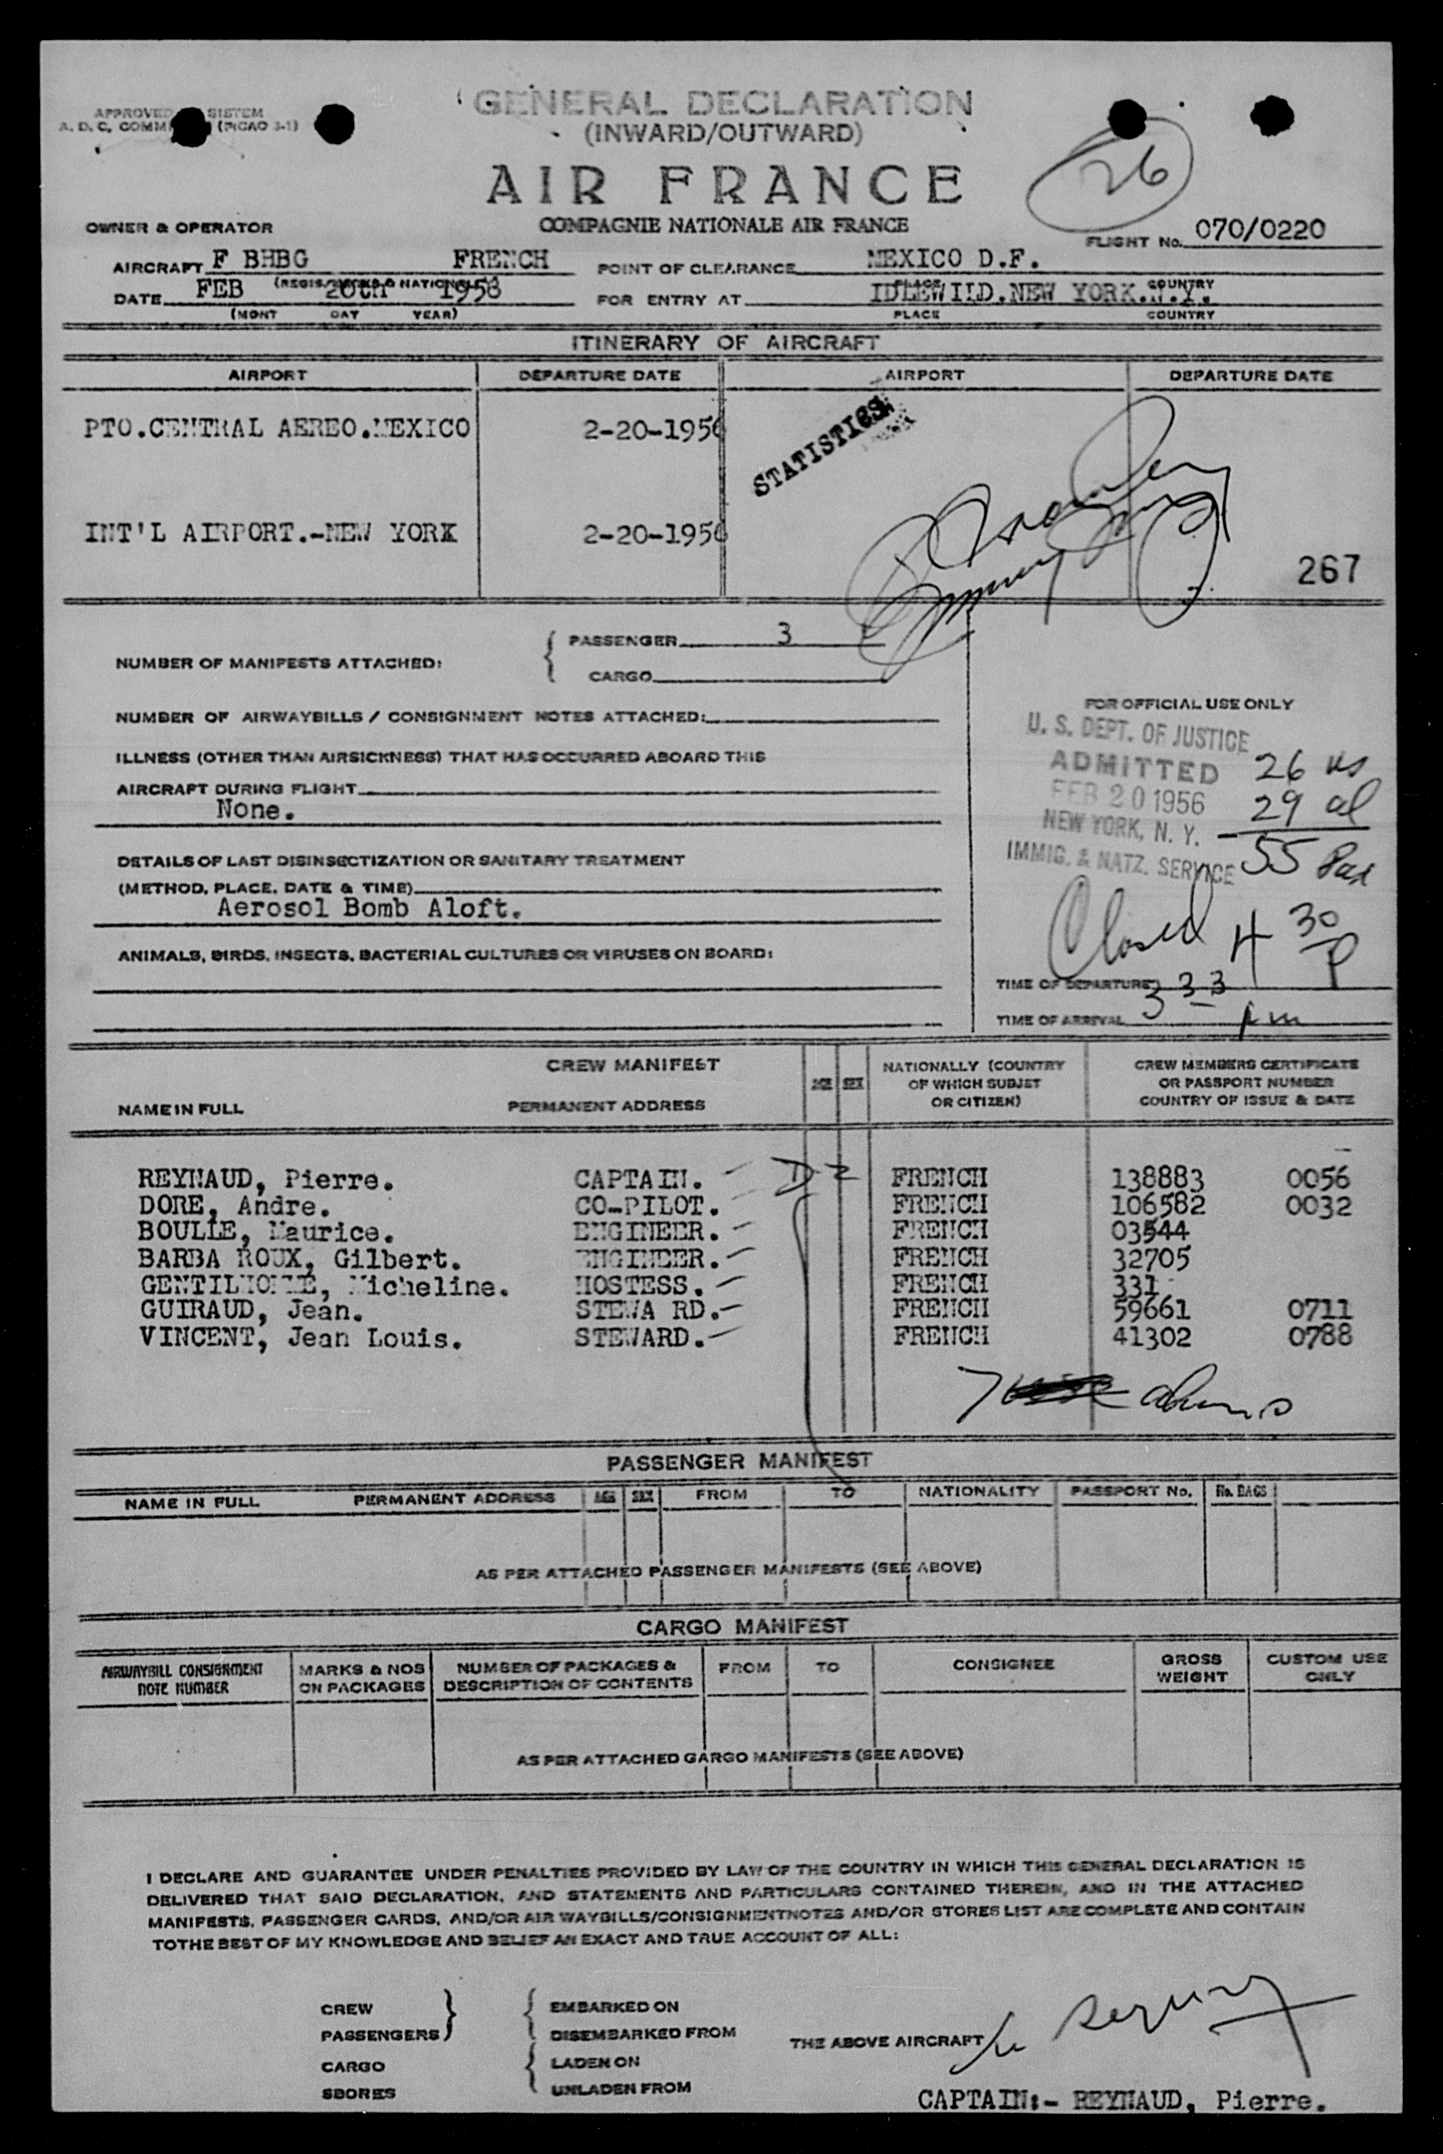 GENERAL DECLARATION
(INWARD/OUTWARD)
APPROVED SISTEM
A. D. C. COMM (PICAO 3-1)
26
AIR FRANCE
COMPAGNIE NATIONALE AIR FRANCE
OWNER & OPERATOR
FLIGHT No. 070/0220
AIRCRAFT F BHBG FRENCH POINT OF CLEARANCE MEXICO D.F.
(REGIS. MARKS & NATIONALITY) PLACE COUNTRY
DATE FEB 20th 1956 FOR ENTRY AT IDLEWILD.NEW YORK.N.Y.
(MONT DAY YEAR) PLACE COUNTRY
ITINERARY OF AIRCRAFT
AIRPORT DEPARTURE DATE AIRPORT DEPARTURE DATE
PTO.CENTRAL AEREO.MEXICO 2-20-1956
STATISTICS
INT'L AIRPORT.-NEW YORK 2-20-1956
267
NUMBER OF MANIFESTS ATTACHED: PASSENGER 3
CARGO
NUMBER OF AIRWAYBILLS / CONSIGNMENT NOTES ATTACHED:
ILLNESS (OTHER THAN AIRSICKNESS) THAT HAS OCCURRED ABOARD THIS
AIRCRAFT DURING FLIGHT
None.
DETAILS OF LAST DISINSECTIZATION OR SANITARY TREATMENT
(METHOD, PLACE, DATE & TIME)
Aerosol Bomb Aloft.
ANIMALS, BIRDS, INSECTS, BACTERIAL CULTURES OR VIRUSES ON BOARD:
FOR OFFICIAL USE ONLY
U. S. DEPT. OF JUSTICE
ADMITTED
FEB 20 1956
NEW YORK, N. Y.
IMMIG. & NATZ. SERVICE
26 us
29 al
55 Pax
Closed 4 30 P
TIME OF DEPARTURE
TIME OF ARRIVAL 3 33 pm
CREW MANIFEST
NAME IN FULL PERMANENT ADDRESS AGE SEX NATIONALLY (COUNTRY
OF WHICH SUBJET
OR CITIZEN)
CREW MEMBERS CERTIFICATE
OR PASSPORT NUMBER
COUNTRY OF ISSUE & DATE
REYNAUD, Pierre. CAPTAIN. D 2 FRENCH 138883 0056
DORE, Andre. CO-PILOT. FRENCH 106582 0032
BOULLE, Maurice. ENGINEER. FRENCH 03544
BARBA ROUX, Gilbert. ENGINEER. FRENCH 32705
GENTILHOMME, Micheline. HOSTESS. FRENCH 331
GUIRAUD, Jean. STEWA RD. FRENCH 59661 0711
VINCENT, Jean Louis. STEWARD. FRENCH 41302 0788
7
PASSENGER MANIFEST
NAME IN FULL PERMANENT ADDRESS AGE SEX FROM TO NATIONALITY PASSPORT No. No. BAGS
AS PER ATTACHED PASSENGER MANIFESTS (SEE ABOVE)
CARGO MANIFEST
AIRWAYBILL CONSIGNMENT
NOTE NUMBER
MARKS & NOS
ON PACKAGES
NUMBER OF PACKAGES &
DESCRIPTION OF CONTENTS
FROM TO CONSIGNEE
GROSS
WEIGHT
CUSTOM USE
ONLY
AS PER ATTACHED GARGO MANIFESTS (SEE ABOVE)
I DECLARE AND GUARANTEE UNDER PENALTIES PROVIDED BY LAW OF THE COUNTRY IN WHICH THIS GENERAL DECLARATION IS
DELIVERED THAT SAID DECLARATION, AND STATEMENTS AND PARTICULARS CONTAINED THEREIN, AND IN THE ATTACHED
MANIFESTS, PASSENGER CARDS, AND/OR AIR WAYBILLS/CONSIGNMENTNOTES AND/OR STORES LIST ARE COMPLETE AND CONTAIN
TOTHE BEST OF MY KNOWLEDGE AND BELIEF AN EXACT AND TRUE ACCOUNT OF ALL:
CREW EMBARKED ON
PASSENGERS DISEMBARKED FROM
THE ABOVE AIRCRAFT
CARGO LADEN ON
SBORES UNLADEN FROM
CAPTAIN:- REYNAUD, Pierre.